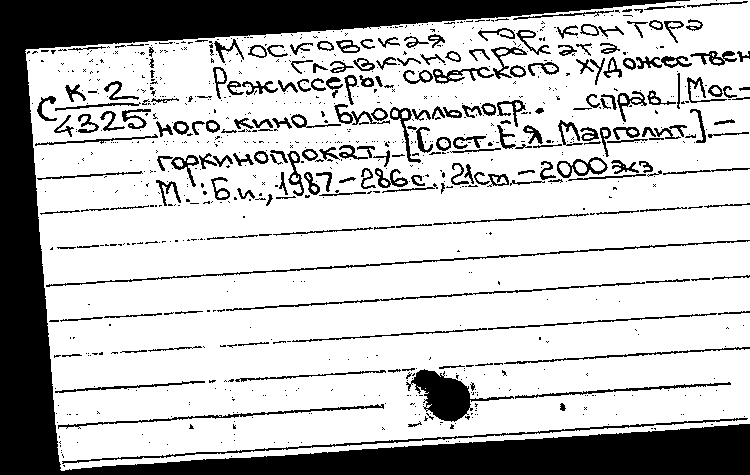 Московская гор. контора
главкинопроката.
С К-2
4325
Режиссеры советского художествен
ного кино: Биофильмогр. справ./Мос-
горкинопрокат; [Сост. Е.Я. Марголит].-
М.: Б.и., 1987.-286с.; 21см.-2000экз.